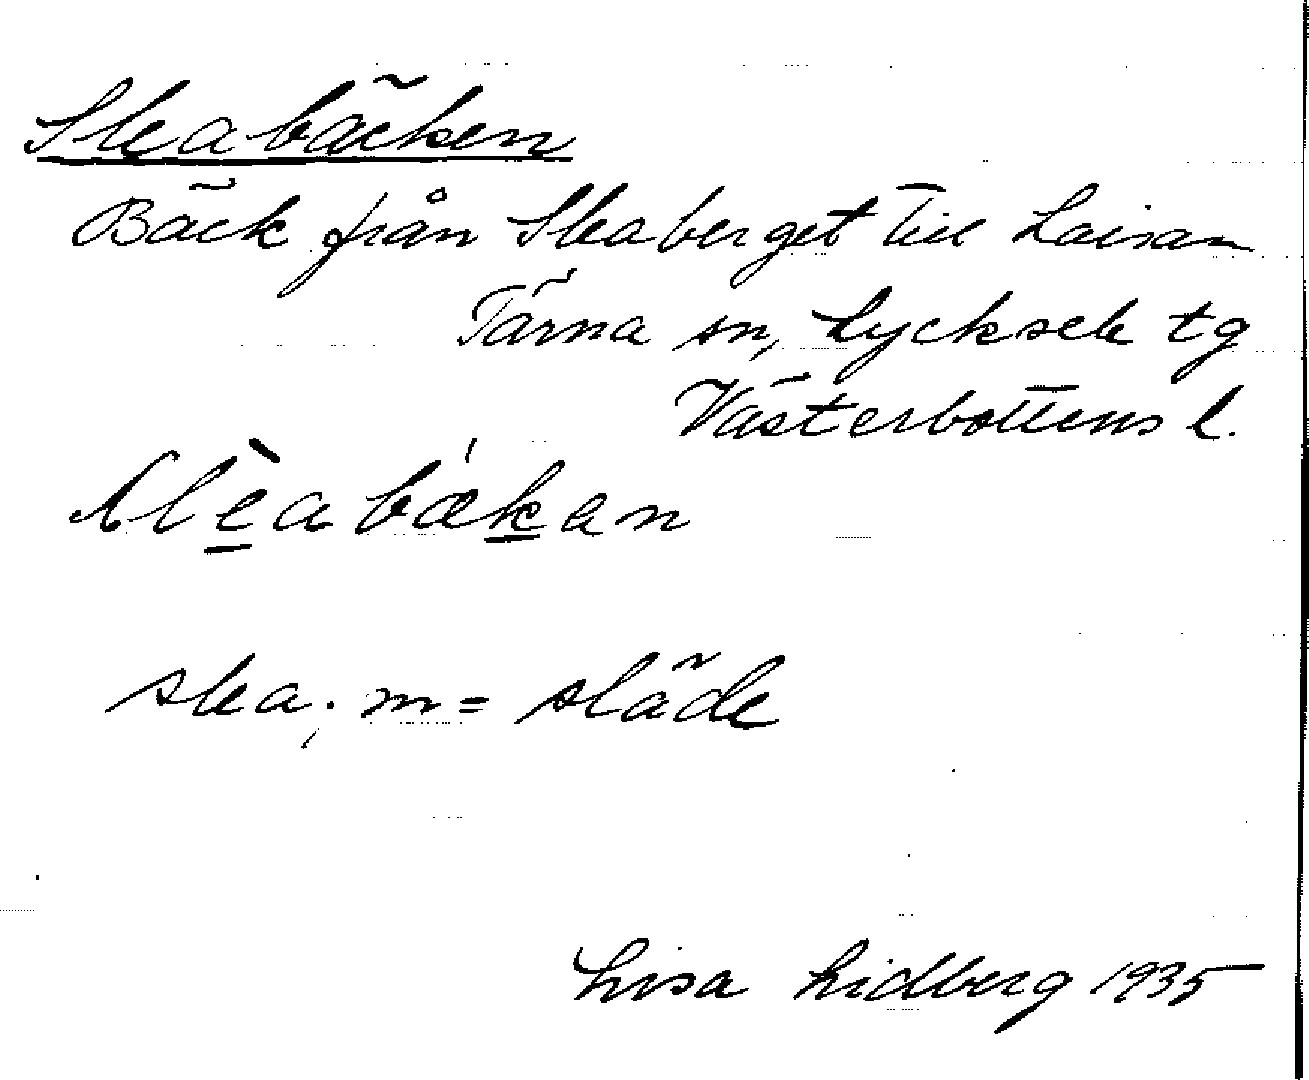 Sleabäcken
Bäck från Sleaberget till Laisan
Tärna sn, Lycksele tg
Västerbottens l.
slèabǽkan
slea, m = släde
Lisa Lidberg 1935